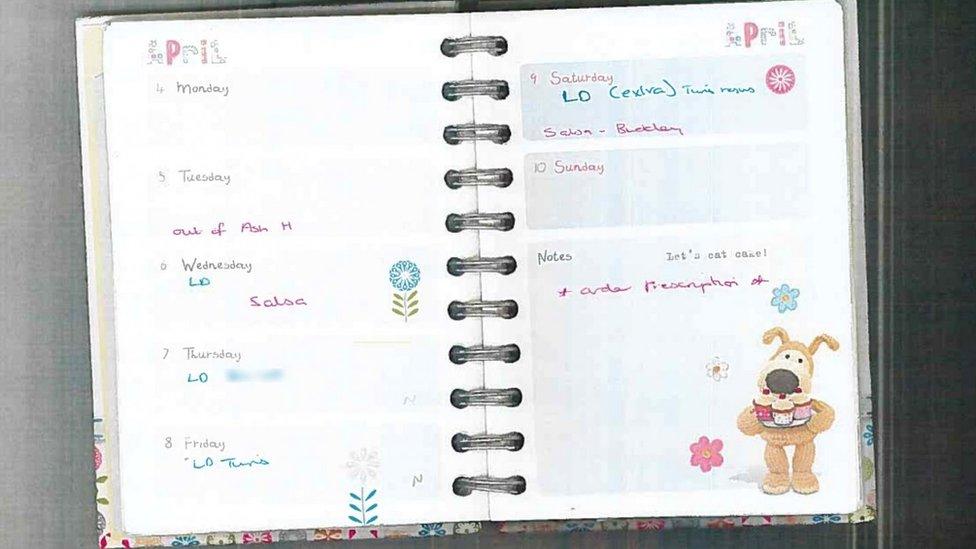 APRIL
4 Monday
5 Tuesday
out of Ash H
6 Wednesday
LD
Salsa
7 Thursday
LD
N
8 Friday
LD Twins
N
APRIL
9 Saturday
LD (extra) Twins resus
Salsa - Buckley
10 Sunday
Notes
Let's eat cake!
* order Prescription *